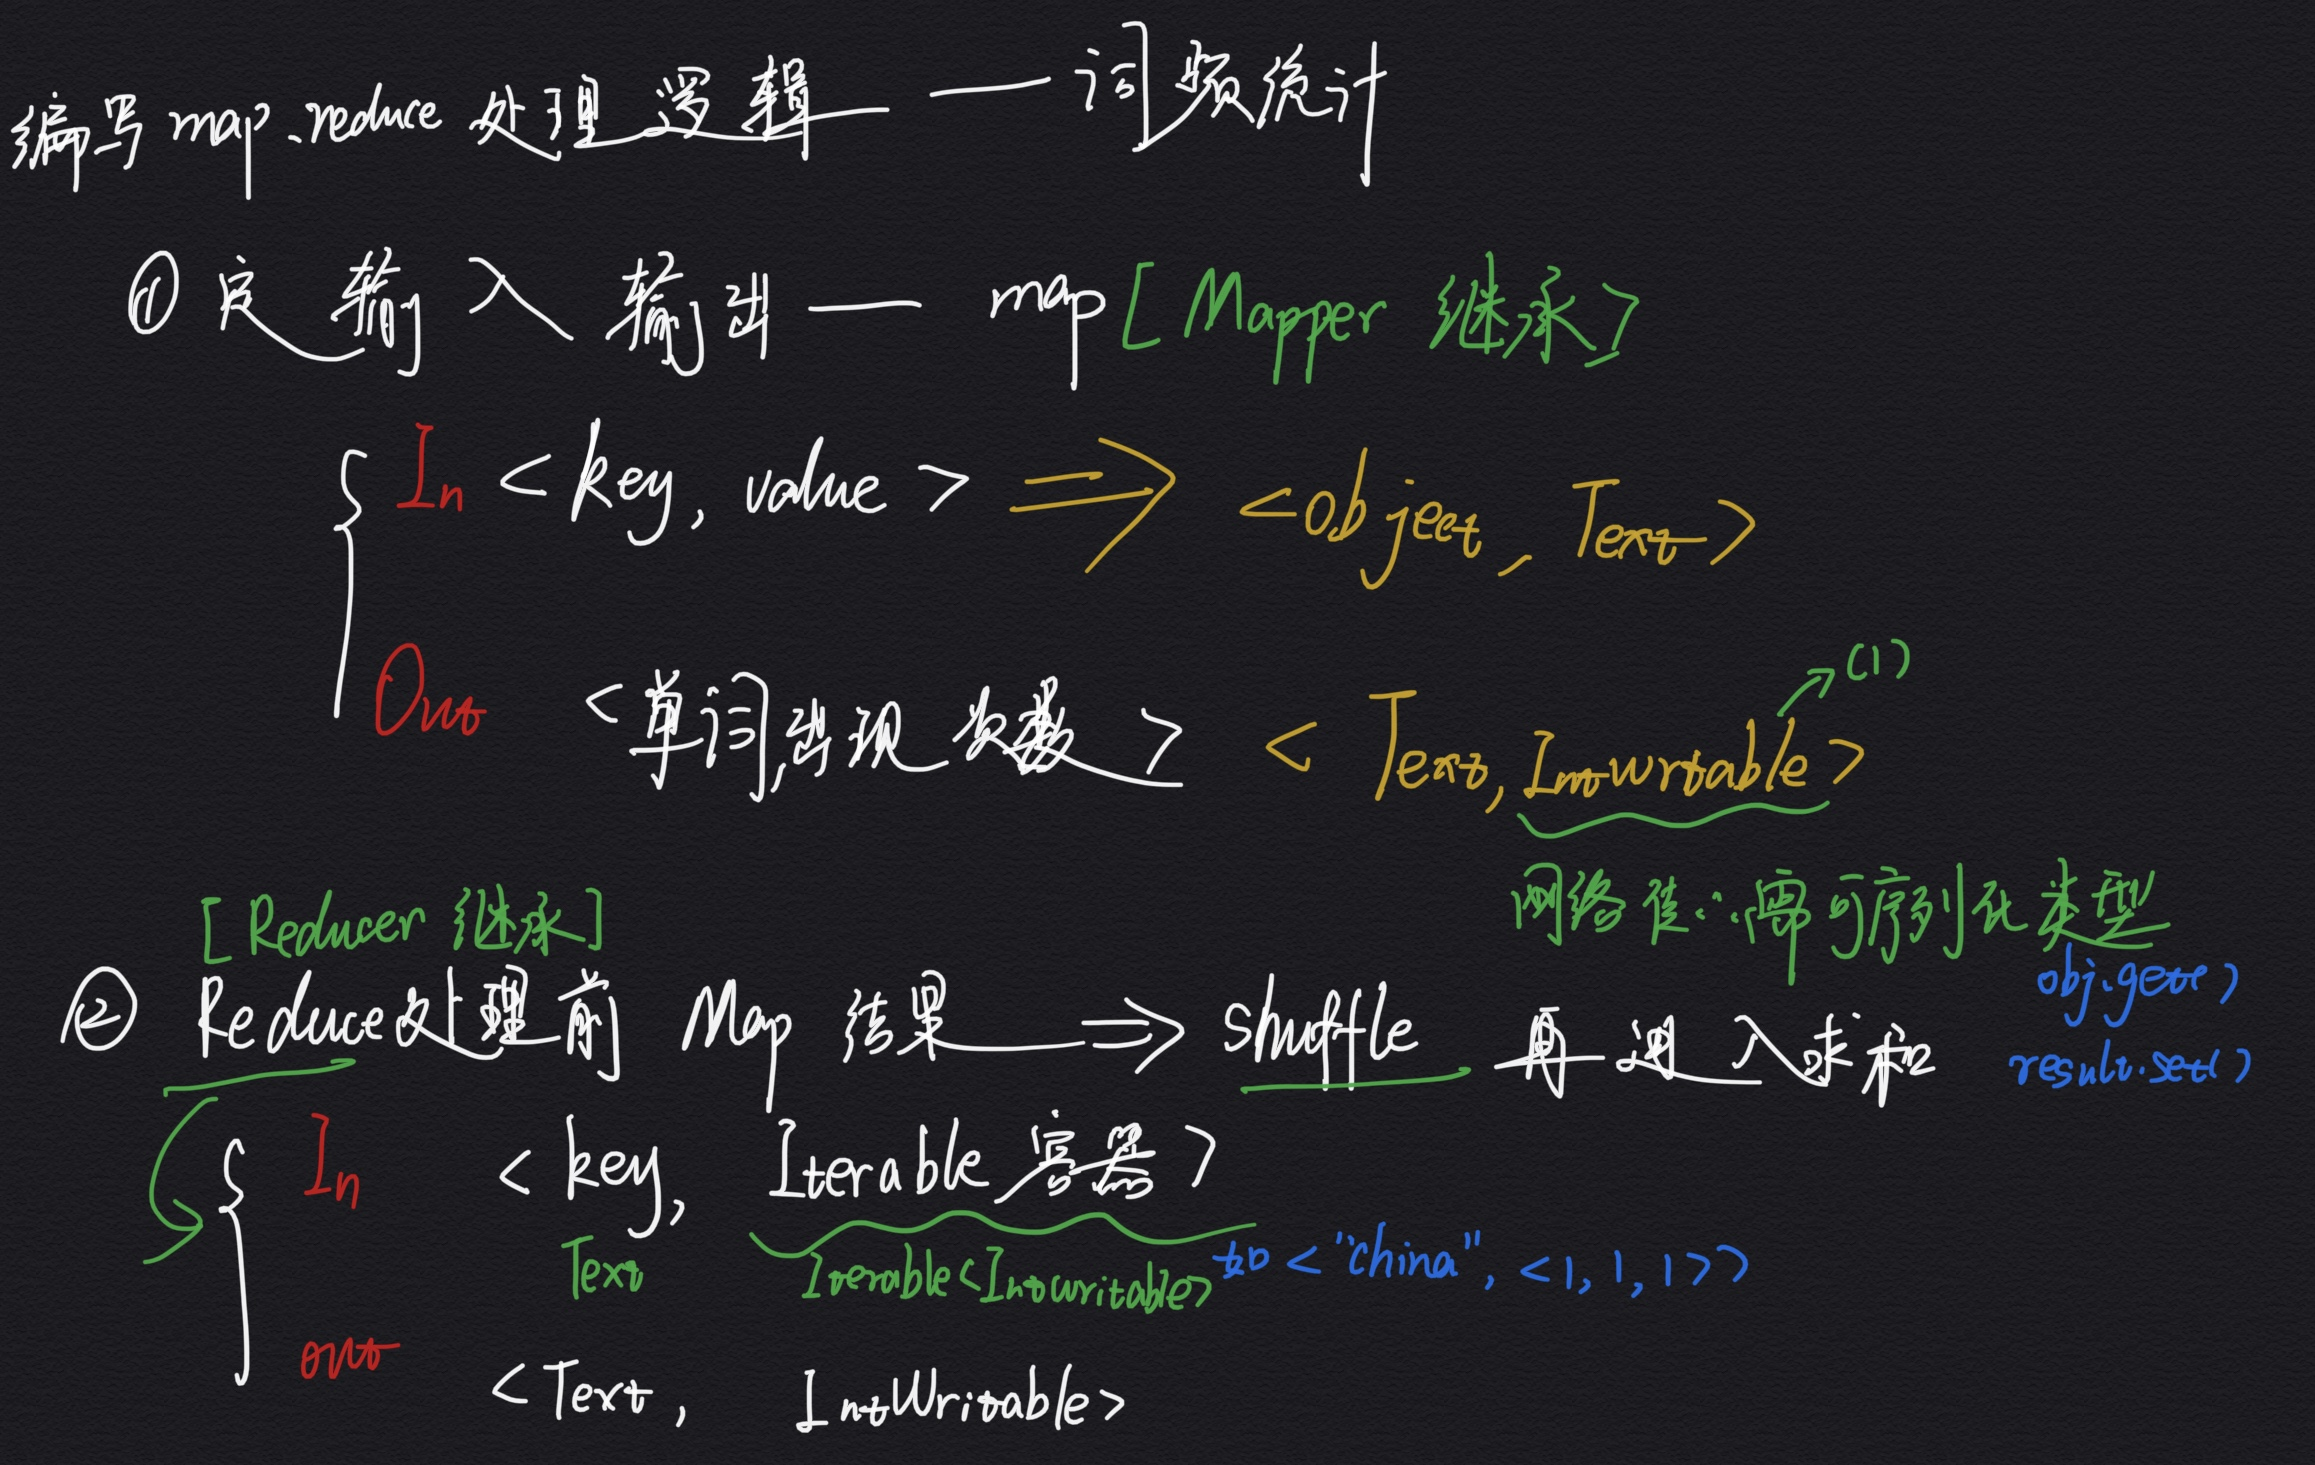 编写map.reduce处理逻辑——词频统计
① 定输入输出—map [Mapper 继承]
In <key, value> ⇒ <object, Text>
(1)
Out <单词,出现次数> <Text, Intwrtable>
网络传∴需可序列化类型
[Reducer 继承]
obj.get()
② Reduce处理前 Map 结果 ⇒ shuffle 再进入求和
result.set()
In <key, Iterable 容器>
Text Iterable<Intwritable> 如<"china", <1,1,1>>
out <Text, IntWritable>